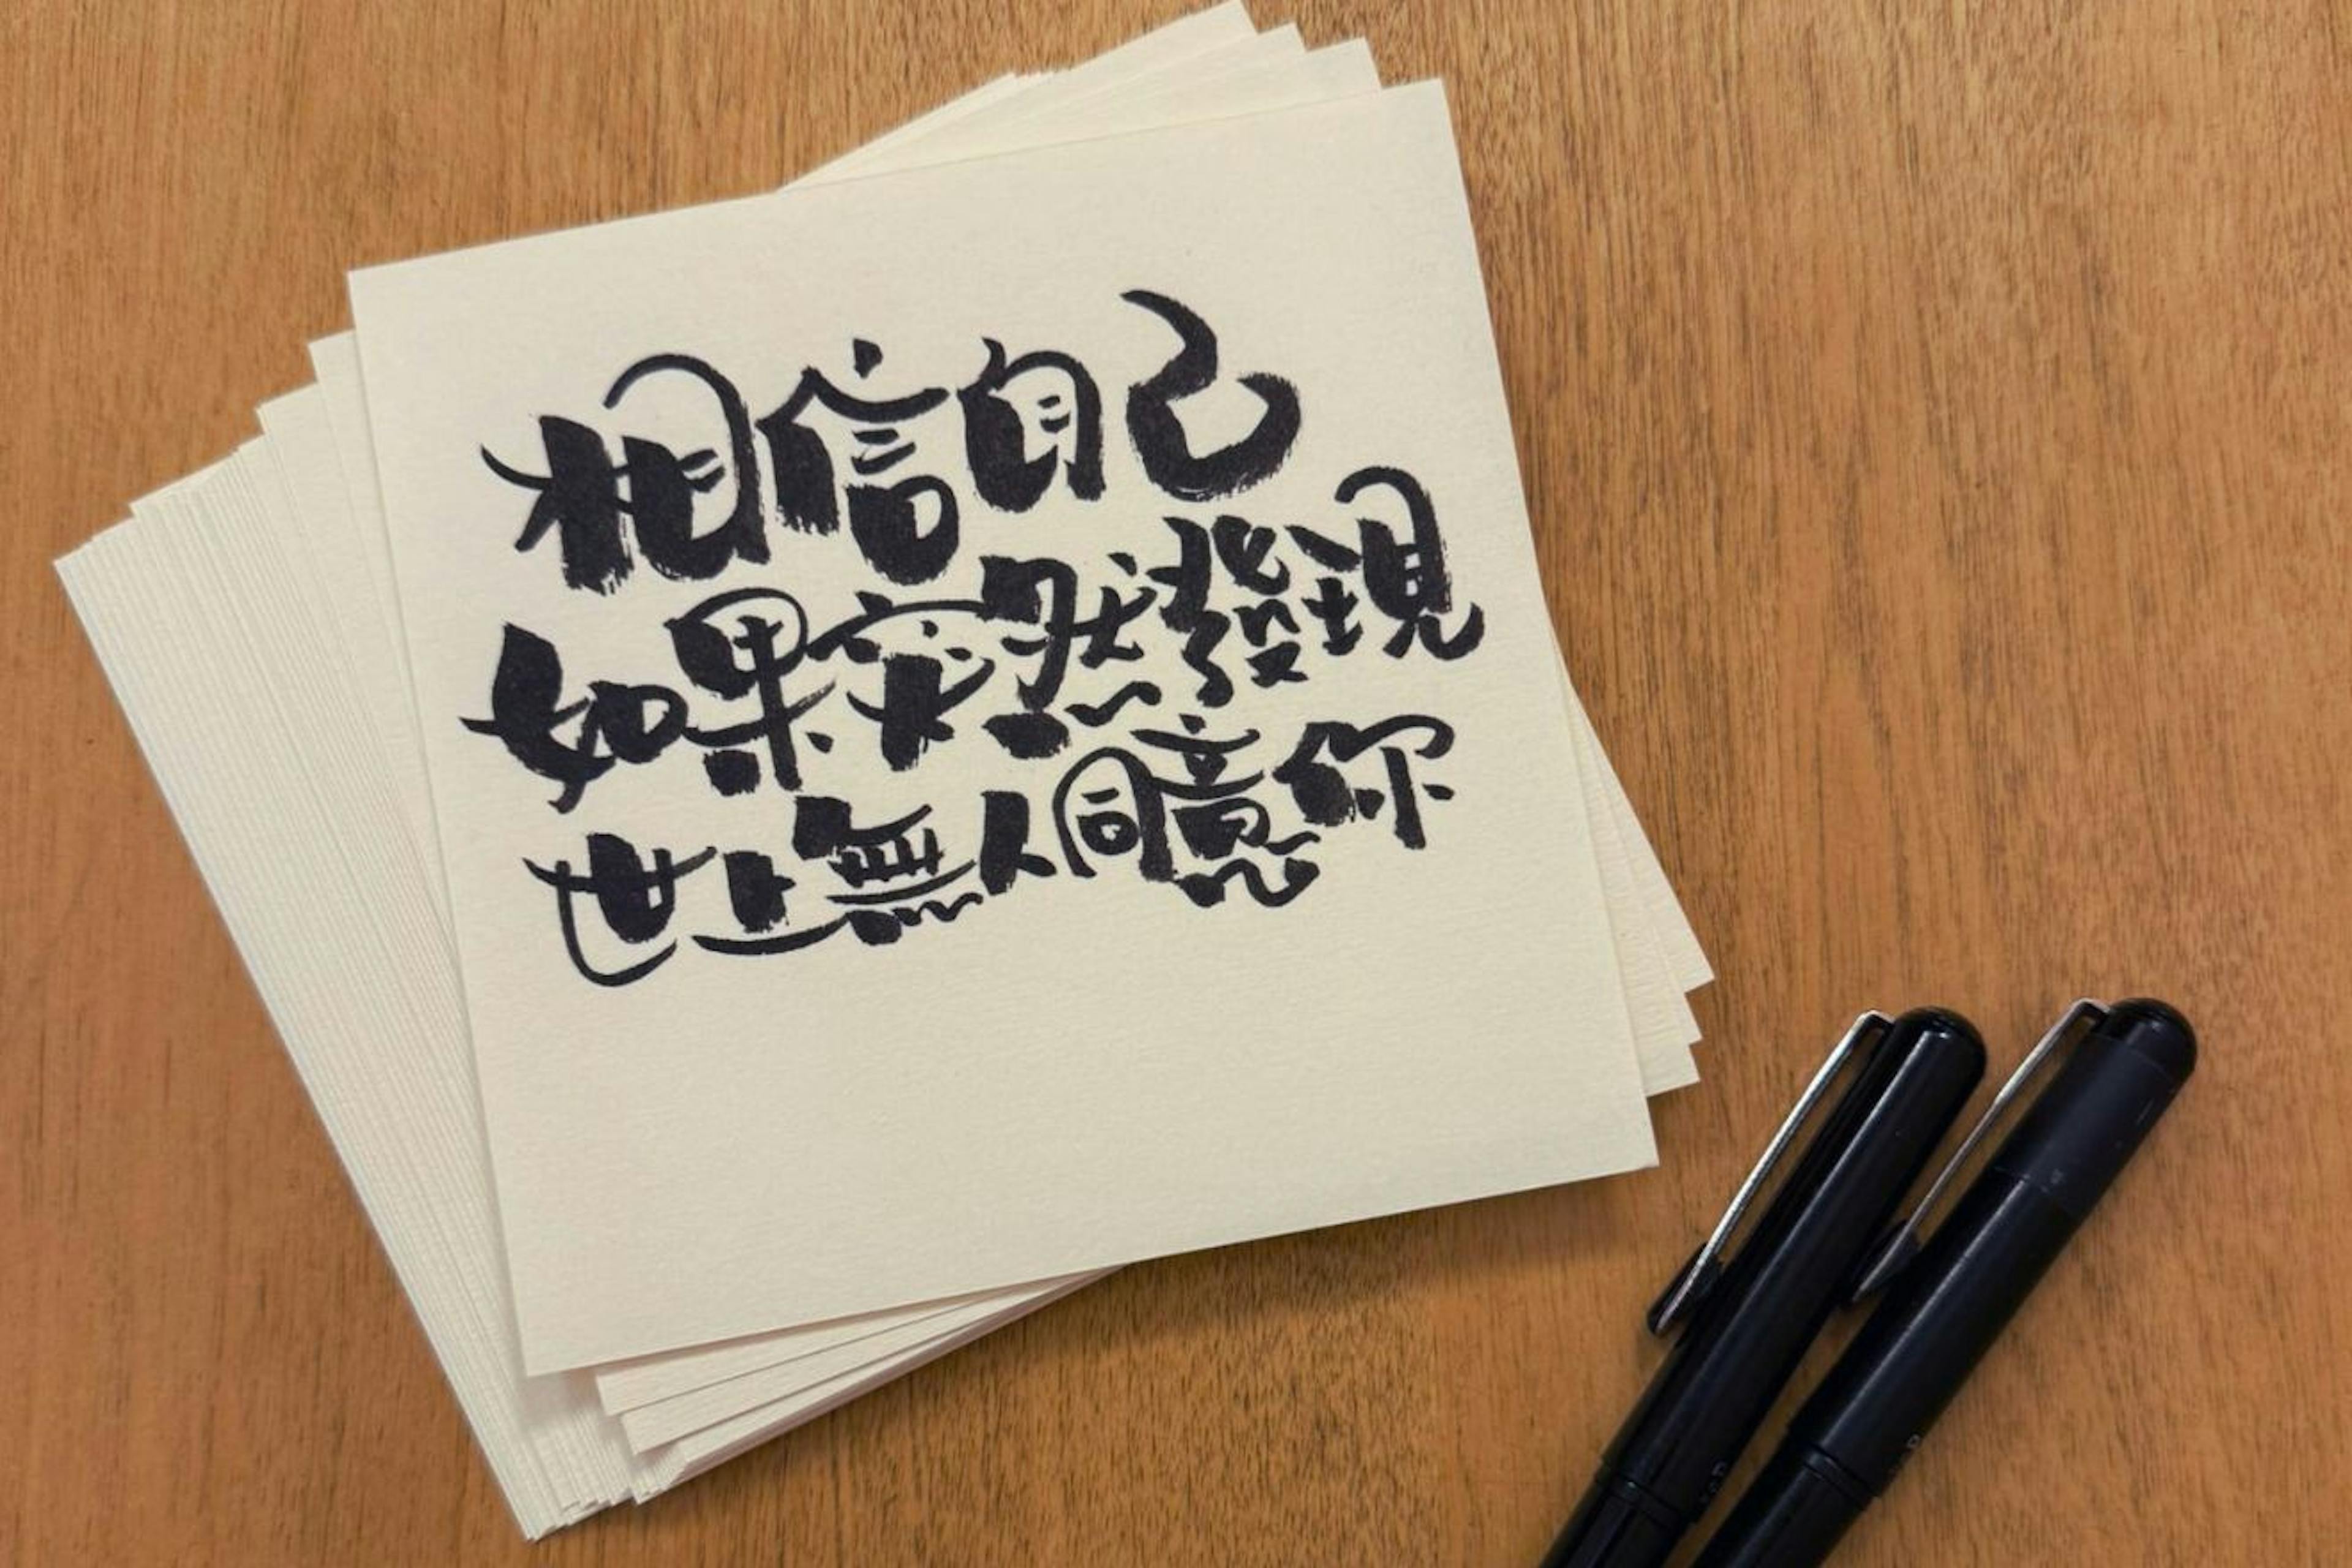 相信自己
如果突然發現
世上無人同意你